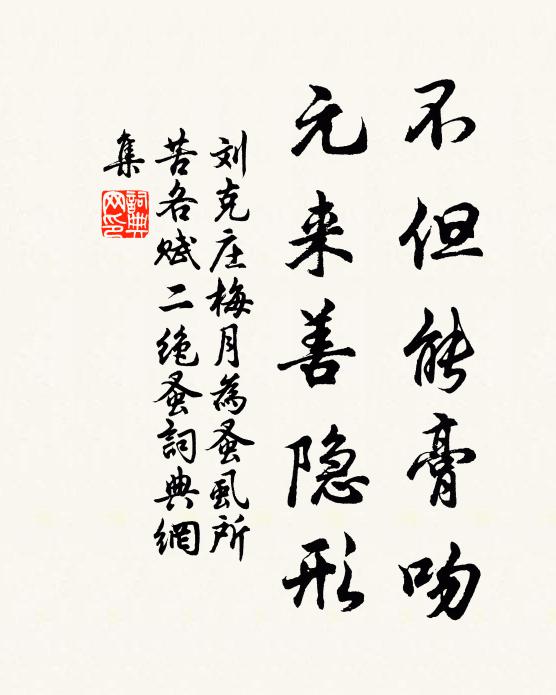 不但能膏吻
元来善隐形
刘克庄梅月為蚤虱所
苦各赋二绝蚤詞典網
集
詞典
网印